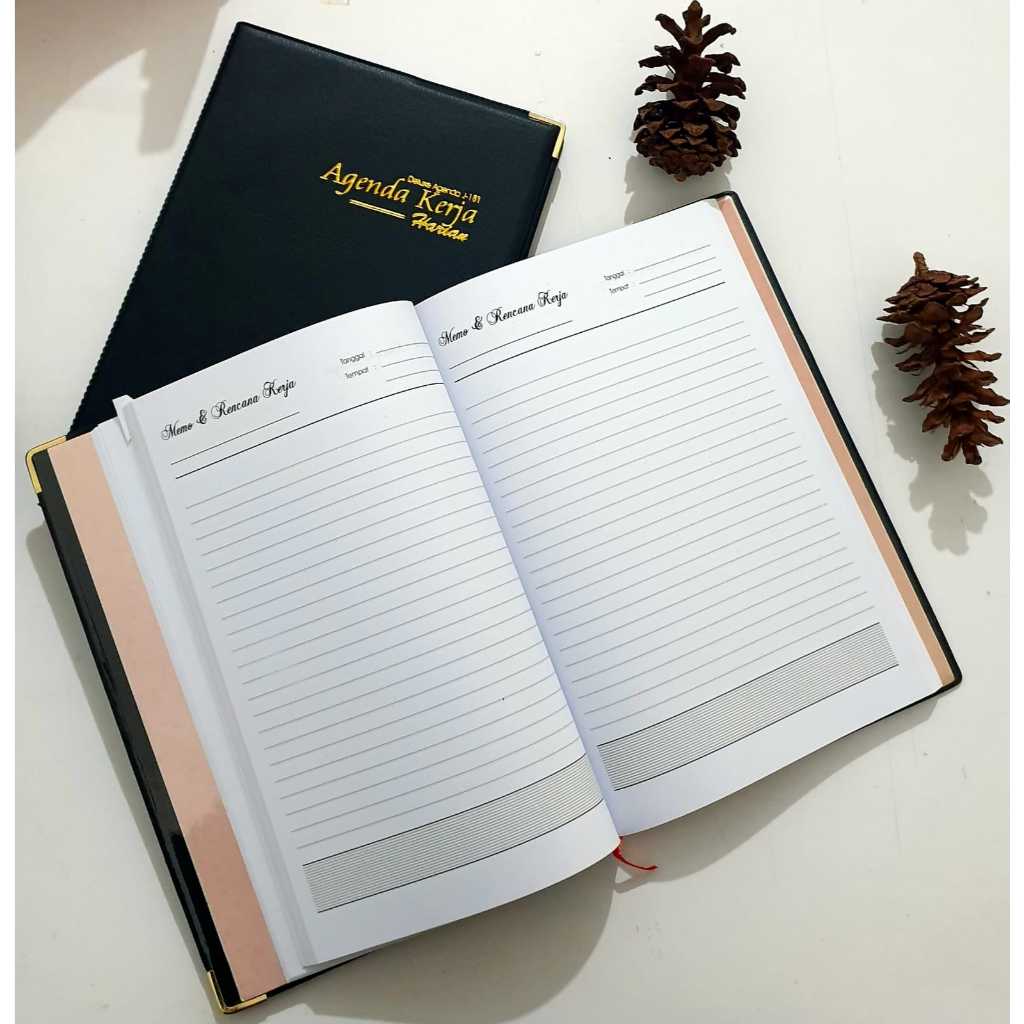 Deluxe Agenda J-181
Agenda Kerja
Harian
Memo & Rencana Kerja
Tanggal :
Tempat :
Memo & Rencana Kerja
Tanggal :
Tempat :